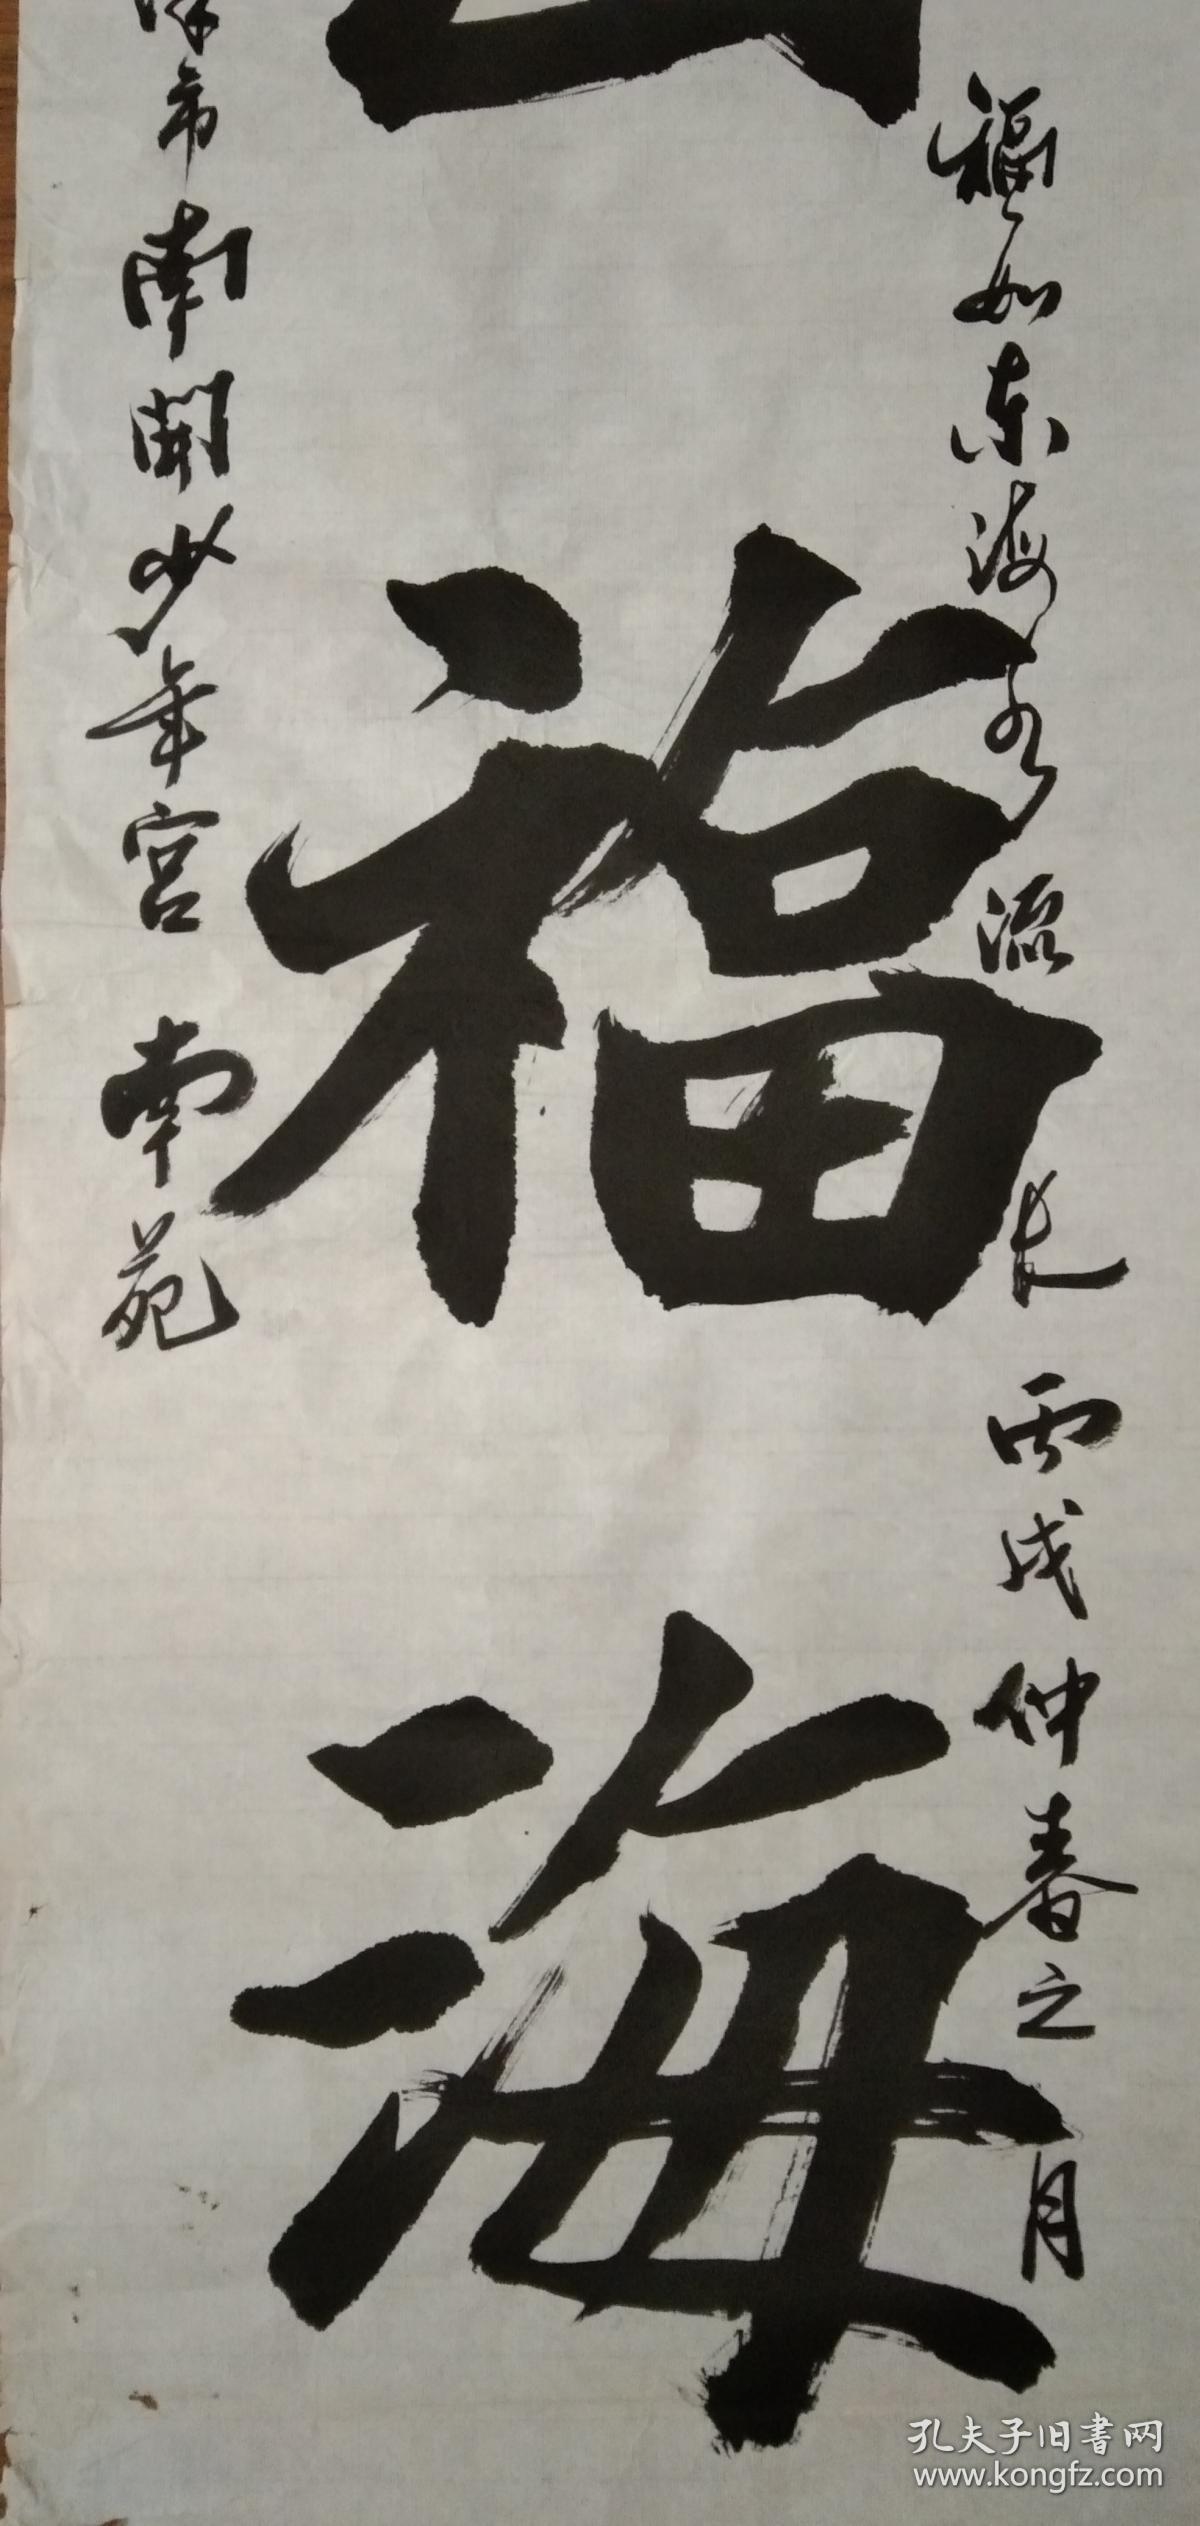 福如东海长流水丙戌仲春之月
福海
市南開少年宫南苑
孔夫子旧书网
www.kongfz.com